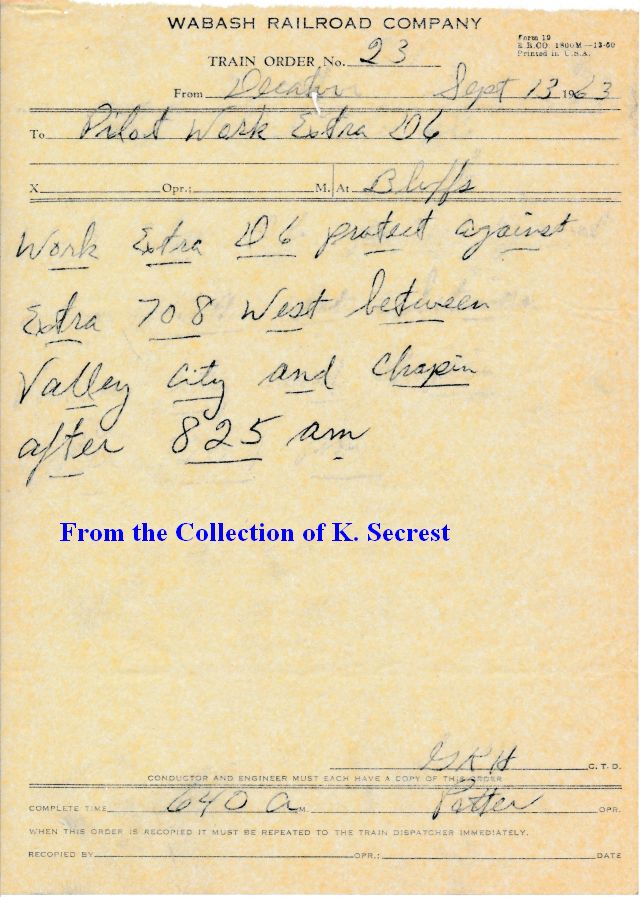 WABASH RAILROAD COMPANY
Form 19
E.R.CO. 1800M—13-60
Printed in U.S.A.
TRAIN ORDER No. 23
From Decatur Sept 13 1963
To Pilot Work Extra D6
X Opr.; M. At Bluffs
Work Extra D6 protect against
Extra 708 West between
Valley City and Chapin
after 825 am
From the Collection of K. Secrest
GRH C.T.D.
CONDUCTOR AND ENGINEER MUST EACH HAVE A COPY OF THIS ORDER
COMPLETE TIME 640 a M. Potter OPR.
WHEN THIS ORDER IS RECOPIED IT MUST BE REPEATED TO THE TRAIN DISPATCHER IMMEDIATELY.
RECOPIED BY OPR.: DATE